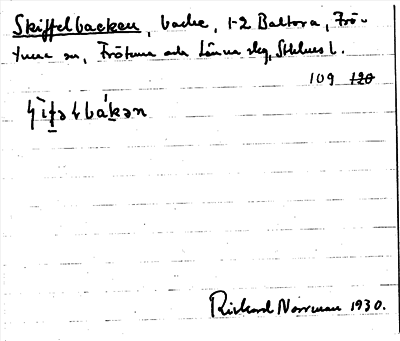 Skiffelbacken, backe, 1-2 Baltora, Frö-
tuna sn, Frötuna och Länna slg, Sthlms l.
109 120
Rickard Norrman 1930.